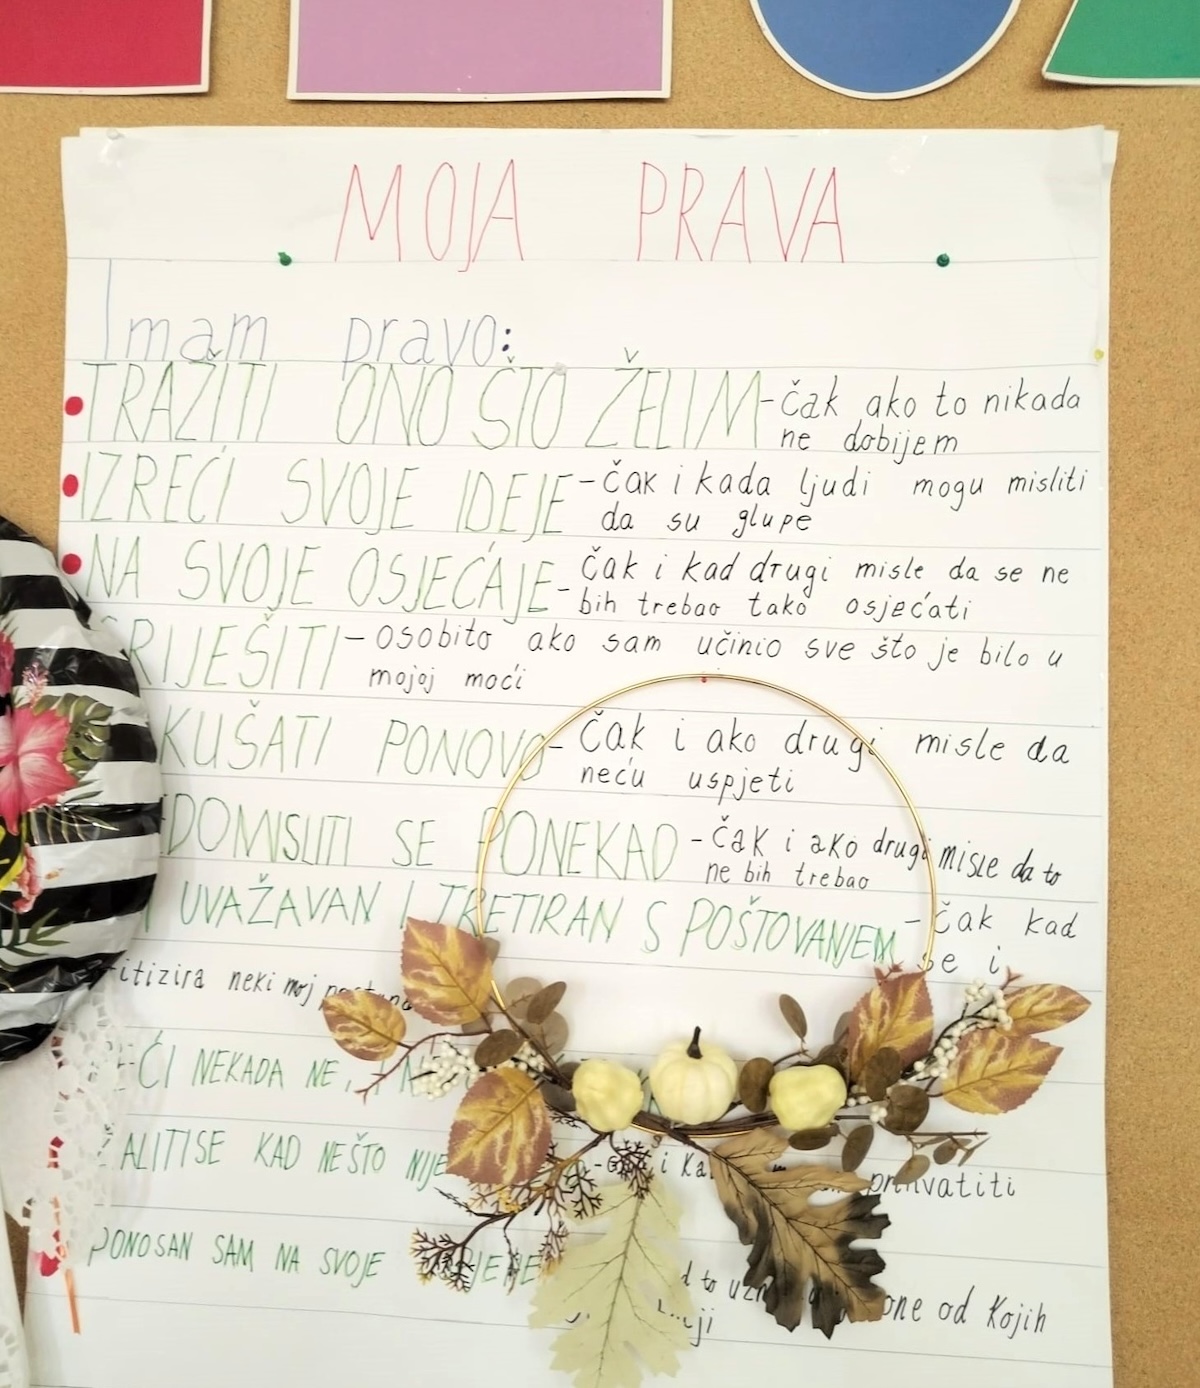 MOJA PRAVA
Imam pravo:
TRAŽITI ONO ŠTO ŽELIM - čak ako to nikada
ne dobijem
IZREĆI SVOJE IDEJE - čak i kada ljudi mogu misliti
da su glupe
NA SVOJE OSJEĆAJE - čak i kad drugi misle da se ne
bih trebao tako osjećati
GRIJEŠITI - osobito ako sam učinio sve što je bilo u
mojoj moći
KUŠATI PONOVO - čak i ako drugi misle da
neću uspjeti
PONEKAD - čak i ako drugi misle da to
ne bih trebao
UVAŽAVAN I TRETIRAN S POŠTOVANJEM - čak kad
se i
neki moj
NEKADA NE,
KAD NEŠTO NIJE
i
PONOSAN SAM NA SVOJE
to
one od kojih